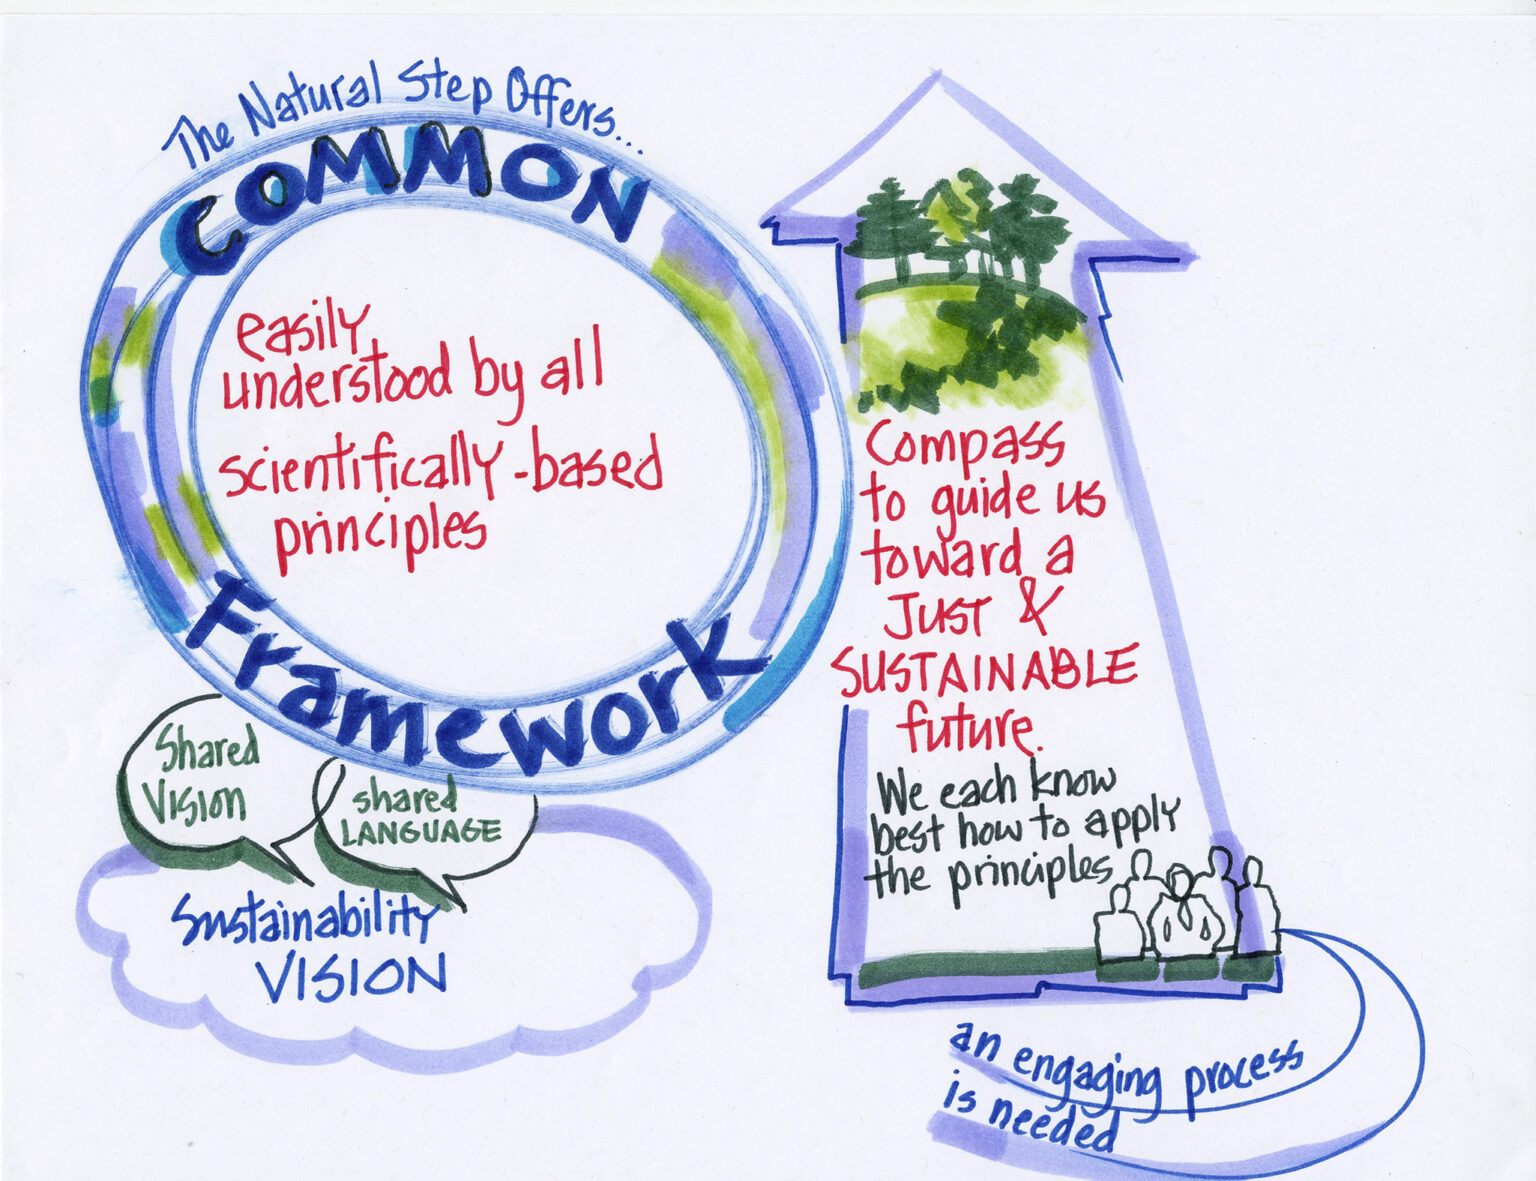 The Natural Step Offers...
COMMON
Framework
easily
understood by all
scientifically-based
principles
Shared
Vision
shared
LANGUAGE
Sustainability
VISION
Compass
to guide us
toward a
JUST &
SUSTAINABLE
future.
We each know
best how to apply
the principles
an engaging process
is needed